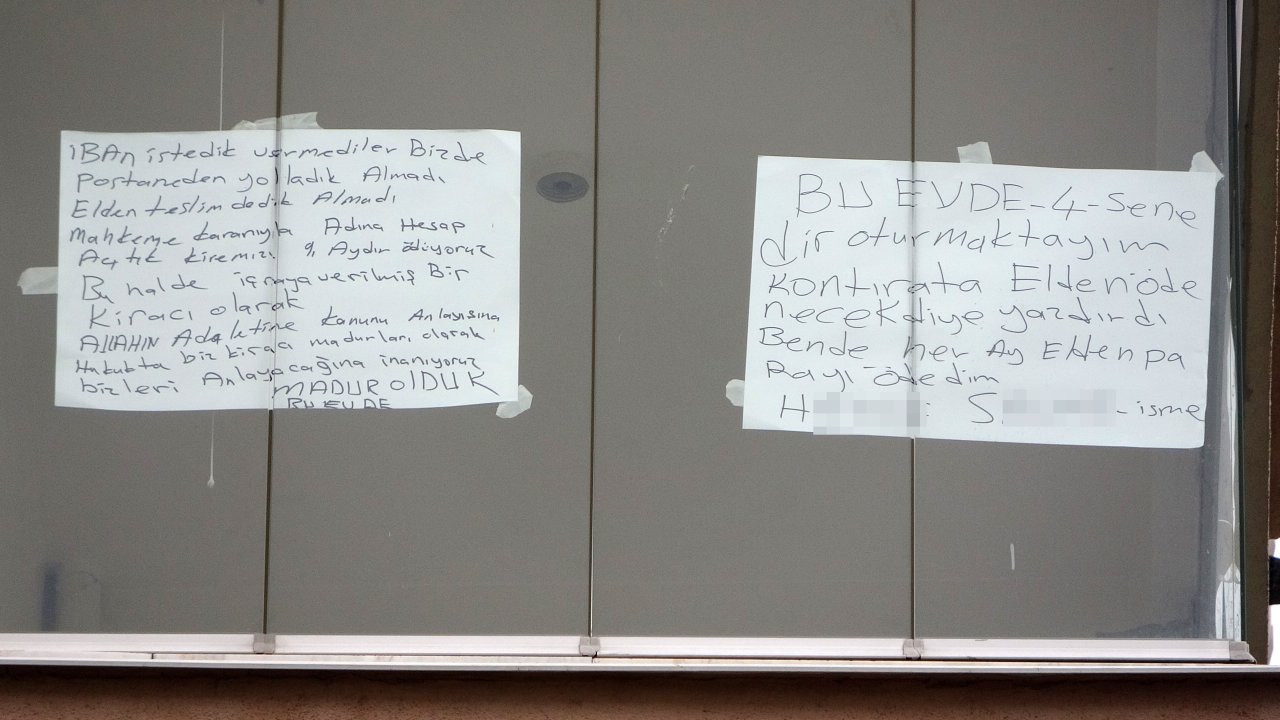 iBAn istedik vermediler Bizde
Postaneden yolladık Almadı
Elden teslim dedik Almadı
Mahkeme kararıyla Adına Hesap
Açtık kiremizi 9, Aydır ödiyoruz
Bu halde icraya verilmiş Bir
Kiracı olarak
AllAHIN Adaletine kanunu Anlayışına
Hukukta biz kiracı madurları olarak
bizleri Anlayacağına inanıyoruz
MADUR OlDUK
BU EVDE
BU EVDE-4-Sene
dir oturmaktayım
kontırata Elden öde
necek diye yazdırdı
Bende her Ay Elden pa
Rayı ödedim
H S -isme